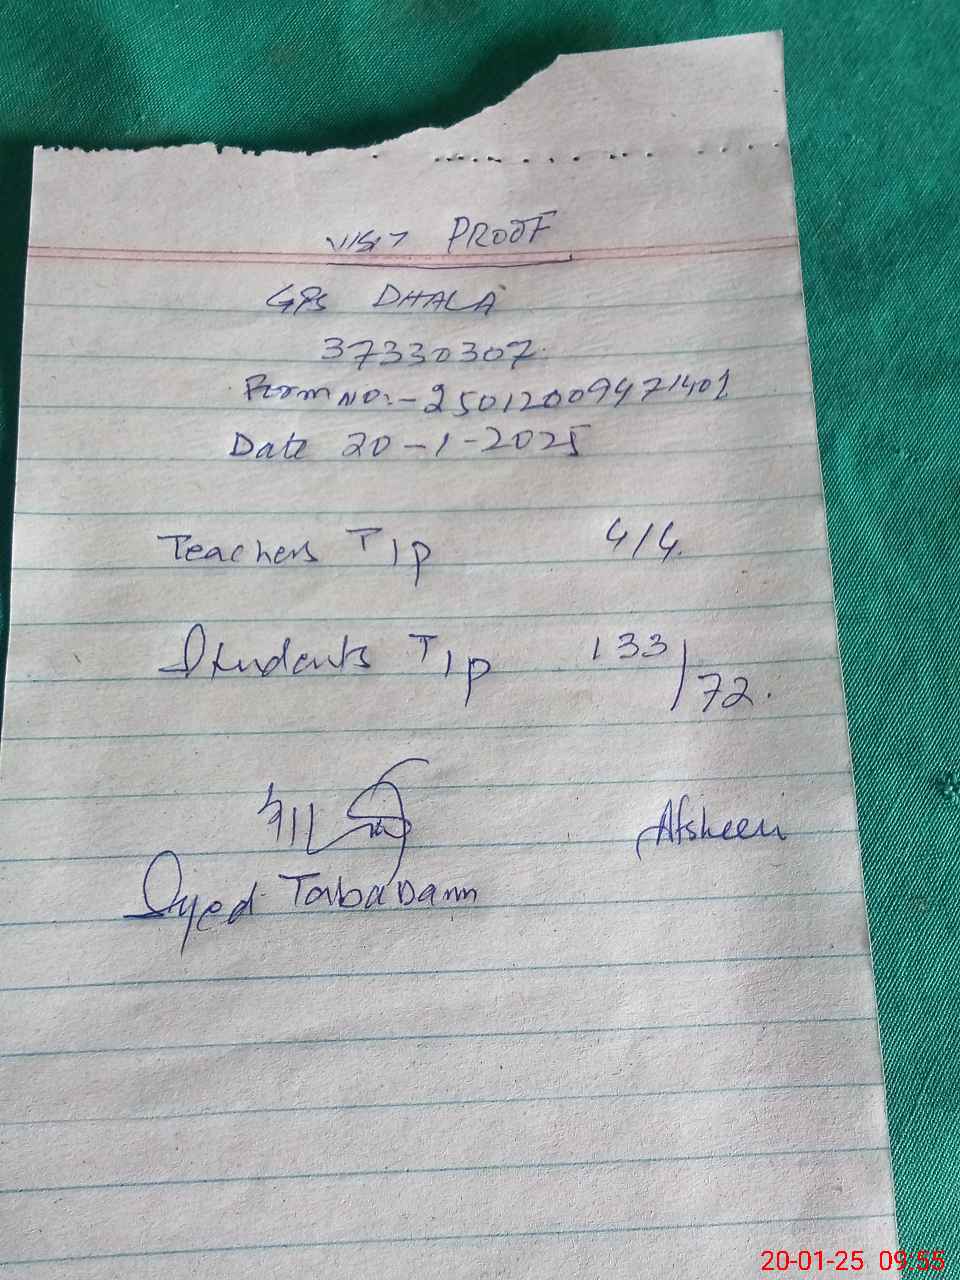 VISIT PROOF
GPS DHALA
37330307.
Form NO:- 25012009471401
Date 20-1-2025
Teachers T/p 4/4.
Students T/p 133/72.
Afsheen
Syed
20-01-25 09:55